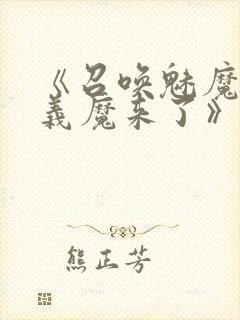 《召唤魅魔
义魔来了》
熊正芳